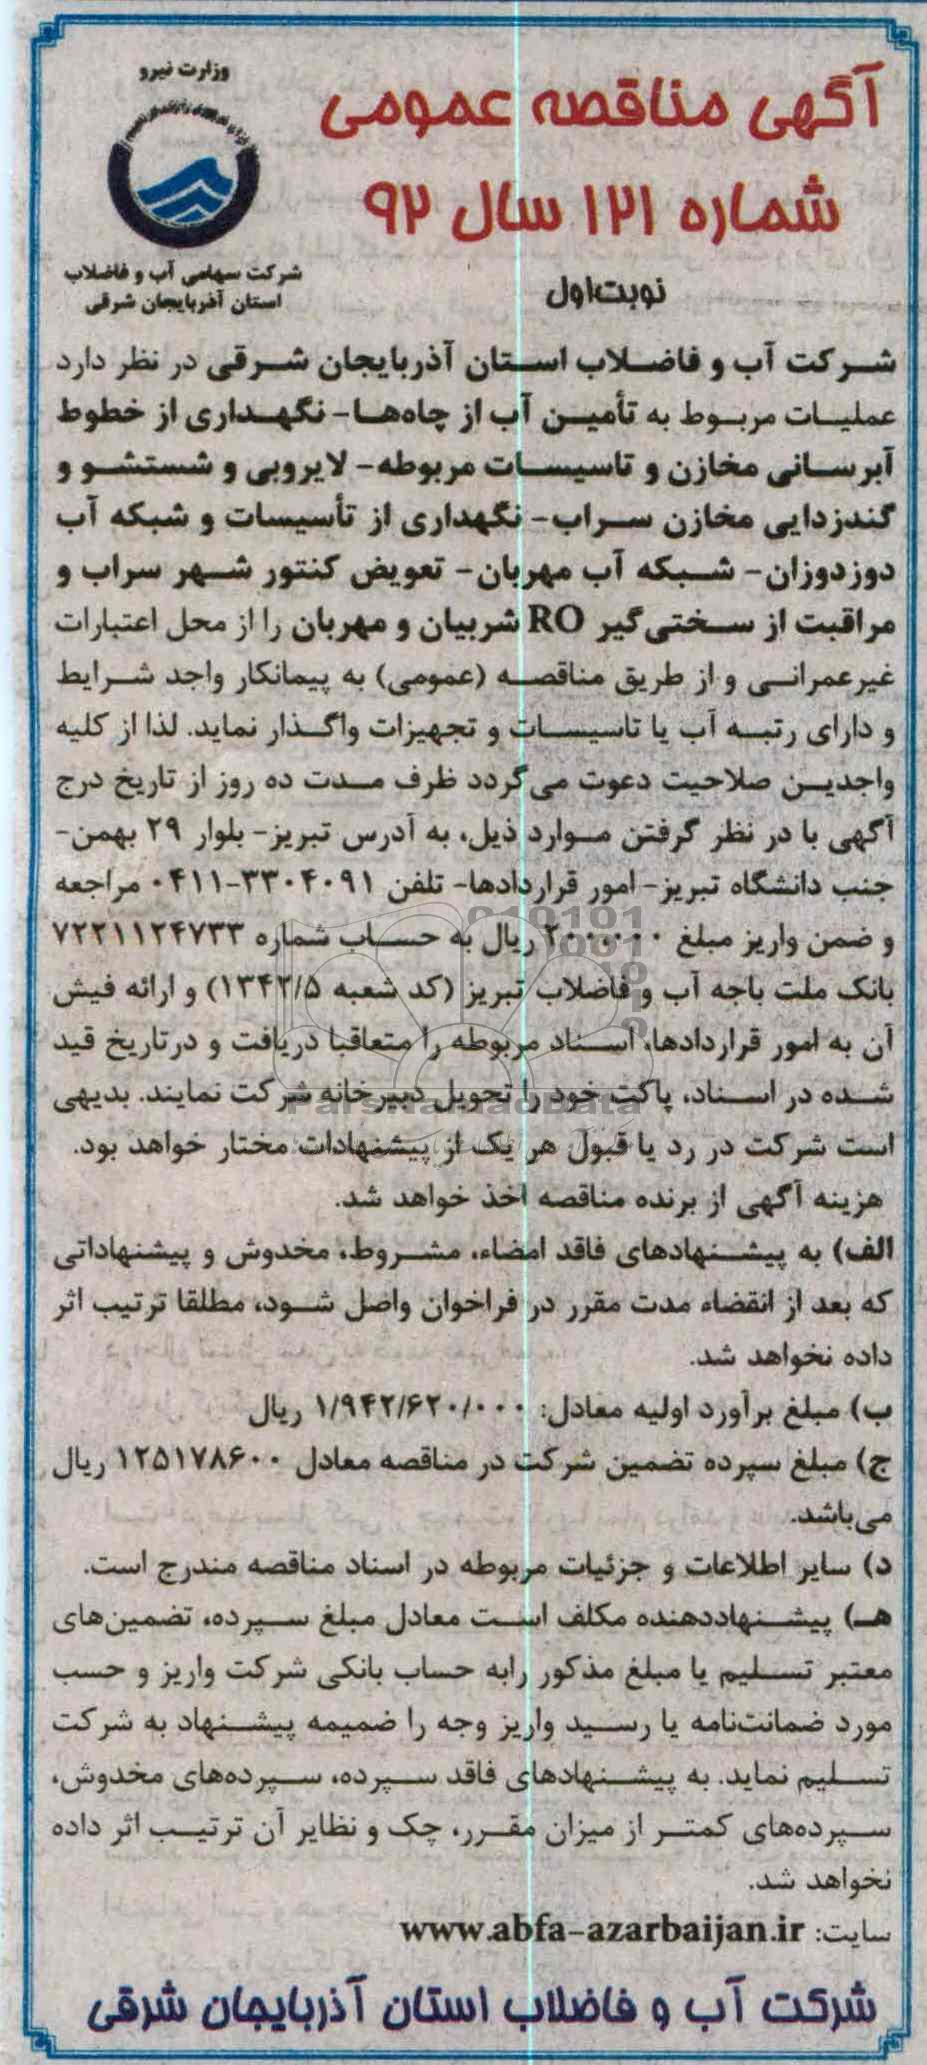 وزارت نیرو
شرکت سهامی آب و فاضلاب
استان آذربایجان شرقی
آگهی مناقصه عمومی
شماره ۱۲۱ سال ۹۲
نوبت‌اول
شرکت آب و فاضلاب استان آذربایجان شرقی در نظر دارد
عملیات مربوط به تأمین آب از چاه‌ها- نگهداری از خطوط
آبرسانی مخازن و تاسیسات مربوطه- لایروبی و شستشو و
گندزدایی مخازن سراب- نگهداری از تأسیسات و شبکه آب
دوزدوزان- شبکه آب مهربان- تعویض کنتور شهر سراب و
مراقبت از سختی‌گیر RO شربیان و مهربان را از محل اعتبارات
غیرعمرانی و از طریق مناقصه (عمومی) به پیمانکار واجد شرایط
و دارای رتبه آب یا تاسیسات و تجهیزات واگذار نماید. لذا از کلیه
واجدین صلاحیت دعوت می‌گردد ظرف مدت ده روز از تاریخ درج
آگهی با در نظر گرفتن موارد ذیل، به آدرس تبریز- بلوار ۲۹ بهمن-
جنب دانشگاه تبریز- امور قراردادها- تلفن ۳۳۰۴۰۹۱-۰۴۱۱ مراجعه
و ضمن واریز مبلغ ۲۰۰،۰۰۰ ریال به حساب شماره ۷۲۲۱۱۲۴۷۳۳
بانک ملت باجه آب و فاضلاب تبریز (کد شعبه ۱۳۴۲/۵) و ارائه فیش
آن به امور قراردادها، اسناد مربوطه را متعاقبا دریافت و درتاریخ قید
شده در اسناد، پاکت خود را تحویل دبیرخانه شرکت نمایند. بدیهی
است شرکت در رد یا قبول هر یک از پیشنهادات مختار خواهد بود.
هزینه آگهی از برنده مناقصه اخذ خواهد شد.
الف) به پیشنهادهای فاقد امضاء، مشروط، مخدوش و پیشنهاداتی
که بعد از انقضاء مدت مقرر در فراخوان واصل شود، مطلقا ترتیب اثر
داده نخواهد شد.
ب) مبلغ برآورد اولیه معادل: ۱/۹۴۲/۶۲۰/۰۰۰ ریال
ج) مبلغ سپرده تضمین شرکت در مناقصه معادل ۱۲۵۱۷۸۶۰۰ ریال
می‌باشد.
د) سایر اطلاعات و جزئیات مربوطه در اسناد مناقصه مندرج است.
هـ) پیشنهاددهنده مکلف است معادل مبلغ سپرده، تضمین‌های
معتبر تسلیم یا مبلغ مذکور رابه حساب بانکی شرکت واریز و حسب
مورد ضمانت‌نامه یا رسید واریز وجه را ضمیمه پیشنهاد به شرکت
تسلیم نماید. به پیشنهادهای فاقد سپرده، سپرده‌های مخدوش،
سپرده‌های کمتر از میزان مقرر، چک و نظایر آن ترتیب اثر داده
نخواهد شد.
سایت: www.abfa-azarbaijan.ir
شرکت آب و فاضلاب استان آذربایجان شرقی